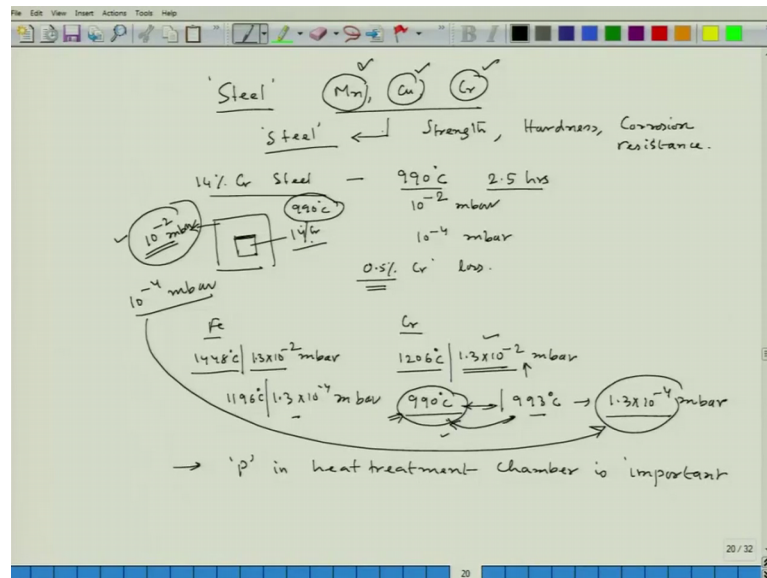 File Edit View Insert Actions Tools Help
'Steel' Mn, Cu, Cr
'Steel' ← Strength, Hardness, Corrosion
resistance.
14% Cr Steel — 990°C 2.5 hrs
10⁻² mbar
990°C
10⁻² mbar
14% Cr
10⁻⁴ mbar
0.5% Cr loss.
10⁻⁴ mbar
Fe Cr
1448°C | 1.3×10⁻² mbar 1206°C | 1.3×10⁻² mbar
1196°C | 1.3×10⁻⁴ mbar 990°C ↔ | 993°C → 1.3×10⁻⁴ mbar
→ 'P' in heat treatment chamber is important
20 / 32
20